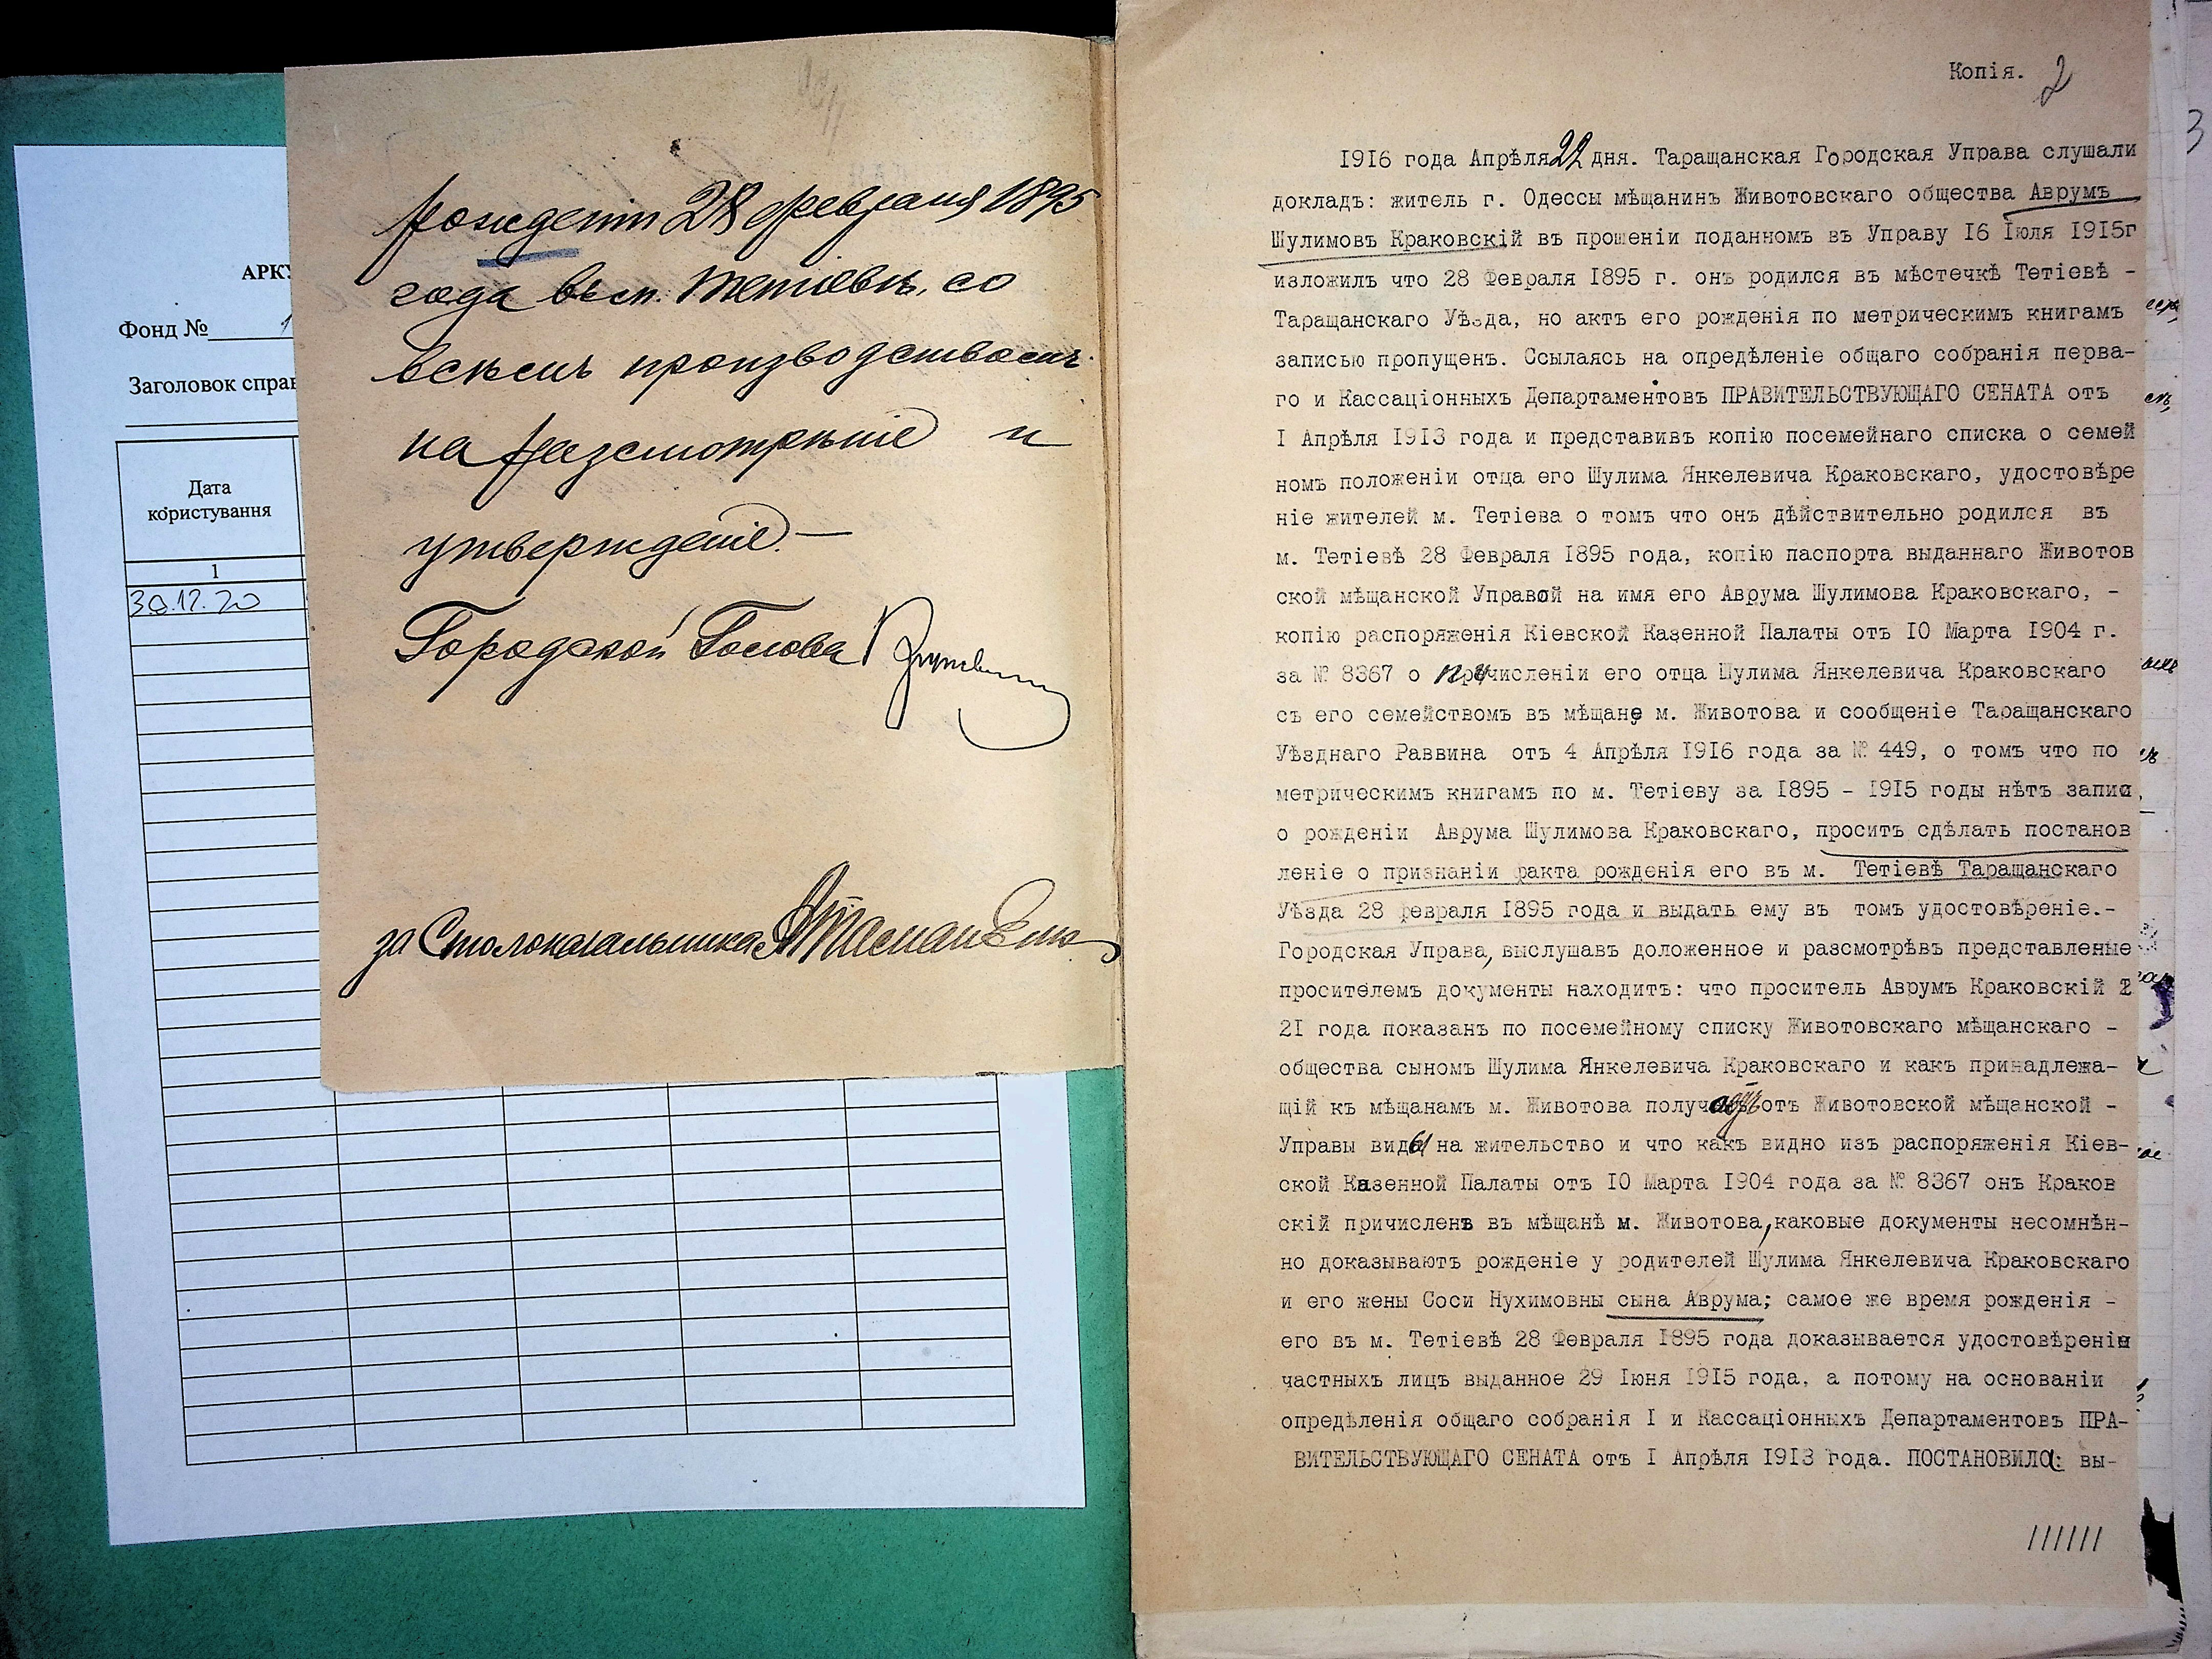 АРКУ
Фонд №
Заголовок справ
Дата
користування
1
30.12.20
рожденіи 28 февраля 1895
года въ м. Тетіевѣ, со
всѣмъ производствомъ
на разсмотрѣніе и
утвержденіе.—
Городской Голова
за Столоначальника
Копія. 2
1916 года Апрѣля 22 дня. Таращанская Городская Управа слушали
докладъ: житель г. Одессы мѣщанинъ Животовскаго общества Аврумъ
Шулимовъ Краковскій въ прошеніи поданномъ въ Управу 16 Іюля 1915г
изложилъ что 28 Февраля 1895 г. онъ родился въ мѣстечкѣ Тетіевѣ -
Таращанскаго Уѣзда, но актъ его рожденія по метрическимъ книгамъ
записью пропущенъ. Ссылаясь на опредѣленіе общаго собранія перва-
го и Кассаціонныхъ Департаментовъ ПРАВИТЕЛЬСТВУЮЩАГО СЕНАТА отъ
I Апрѣля 1913 года и представивъ копію посемейнаго списка о семей
номъ положеніи отца его Шулима Янкелевича Краковскаго, удостовѣре
ніе жителей м. Тетіева о томъ что онъ дѣйствительно родился въ
м. Тетіевѣ 28 Февраля 1895 года, копію паспорта выданнаго Животов
ской мѣщанской Управой на имя его Аврума Шулимова Краковскаго, -
копію распоряженія Кіевской Казенной Палаты отъ 10 Марта 1904 г.
за № 8367 о причисленіи его отца Шулима Янкелевича Краковскаго
съ его семействомъ въ мѣщане м. Животова и сообщеніе Таращанскаго
Уѣзднаго Раввина отъ 4 Апрѣля 1916 года за № 449, о томъ что по
метрическимъ книгамъ по м. Тетіеву за 1895 - 1915 годы нѣтъ запис
о рожденіи Аврума Шулимова Краковскаго, проситъ сдѣлать постанов
леніе о признаніи факта рожденія его въ м. Тетіевѣ Таращанскаго
Уѣзда 28 февраля 1895 года и выдать ему въ томъ удостовѣреніе.-
Городская Управа, выслушавъ доложенное и разсмотрѣвъ представленые
просителемъ документы находитъ: что проситель Аврумъ Краковскій
21 года показанъ по посемейному списку Животовскаго мѣщанскаго -
общества сыномъ Шулима Янкелевича Краковскаго и какъ принадлежа-
щій къ мѣщанамъ м. Животова отъ Животовской мѣщанской -
Управы виды на жительство и что какъ видно изъ распоряженія Кіев-
ской Казенной Палаты отъ 10 Марта 1904 года за № 8367 онъ Краков
скій причисленъ въ мѣщанѣ м. Животова, каковые документы несомнѣн-
но доказываютъ рожденіе у родителей Шулима Янкелевича Краковскаго
и его жены Соси Нухимовны сына Аврума; самое же время рожденія -
его въ м. Тетіевѣ 28 Февраля 1895 года доказывается удостовѣреніи
частныхъ лицъ выданное 29 Іюня 1915 года, а потому на основаніи
опредѣленія общаго собранія I и Кассаціонныхъ Департаментовъ ПРА-
ВИТЕЛЬСТВУЮЩАГО СЕНАТА отъ I Апрѣля 1913 года. ПОСТАНОВИЛА: вы-
//////
3